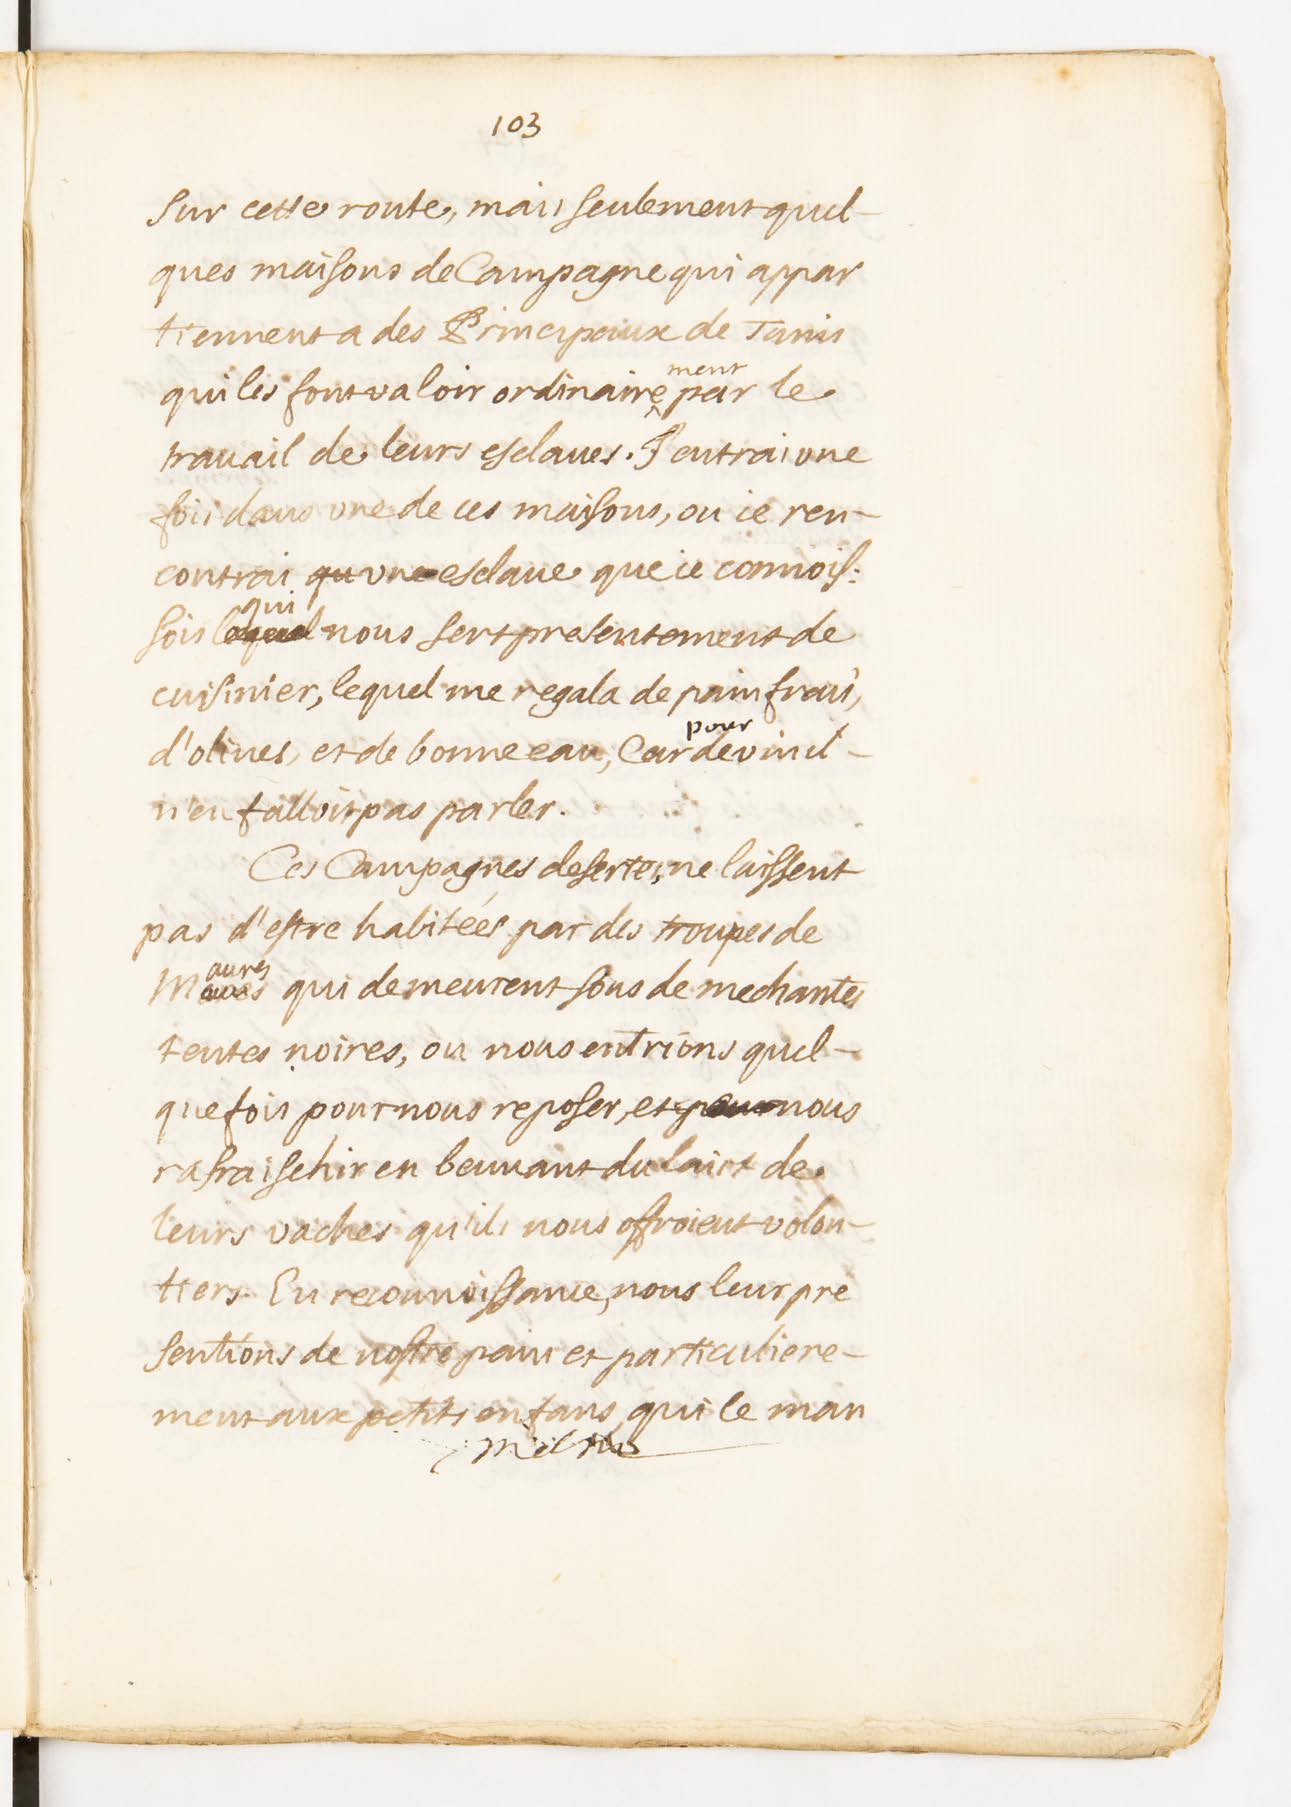 103
sur cette route, mais seulement quel-
ques maisons de Campagne qui appar
tiennent a des Principaux de Tunis
qui les font valoir ordinairement par le
travail de leurs esclaves. J'entrai une
fois dans une de ces maisons, ou ie ren-
contrai qu vne esclaue que ie connois-
sois qui nous sert presentement de
cuisinier, lequel me regala de pain frais,
d'oliues, et de bonne eau, Car pour de vin il
n'en falloit pas parler.
Ces Campagnes desertes, ne laissent
pas d'estre habitées par des troupes de
Maures qui demeurent sous de mechantes
tentes noires, ou nous entrions quel-
quefois pour nous reposer, et pour nous
rafraischir en beuuant du laict de
leurs vaches qu'ils nous offroient volon-
tiers. En reconnoissance, nous leur pre
sentions de nostre pain et particuliere-
ment aux petits enfans, qui le man